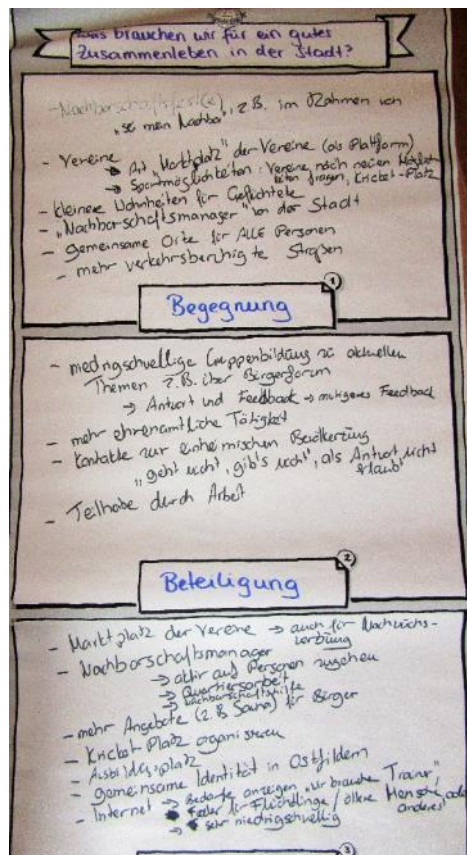 Was brauchen wir für ein gutes
Zusammenleben in der Stadt?
- Nachbarschaftsfest(e), z.B. im Rahmen von
"sei mein Nachbar"
- Vereine
→ Art "Marktplatz" der Vereine (als Plattform)
→ Sportmöglichkeiten: Vereine nach neuen Möglich-
keiten fragen, Kricket-Platz
- kleinere Wohneinheiten für Geflüchtete
- "Nachbarschaftsmanager" von der Stadt
- gemeinsame Orte für ALLE Personen
- mehr verkehrsberuhigte Straßen
1
Begegnung
- niedrigschwellige Gruppenbildung zu aktuellen
Themen z.B. über Bürgerforum
→ Antwort und Feedback → Feedback
- mehr ehrenamtliche Tätigkeit
- Kontakte zur einheimischen Bevölkerung
"geht nicht, gib's nicht", als Antwort nicht
erlaubt
- Teilhabe durch Arbeit
2
Beteiligung
- Marktplatz der Vereine → auch für Nachwuchs-
werbung
- Nachbarschaftsmanager
→ aktiv auf Personen zugehen
→ Quartiersarbeit
→ Nachbarschaftshilfe
- mehr Angebote (z.B. Sauna) für Bürger
- Kricket-Platz organisieren
- Ausbildungsplatz
- gemeinsame Identität in Ostfildern
- Internet → Bedarfe anzeigen "wir brauchen Trainer",
für Flüchtlinge / ältere Menschen oder
anderes
→ sehr niedrigschwellig
3